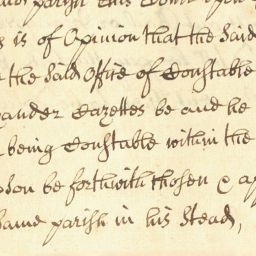 parish this Court upon
is of Opinion that the said
the said Office of Constable
ander Cazettes be and he
being Constable within the
son be forthwith chosen & ap
same parish in his Stead,